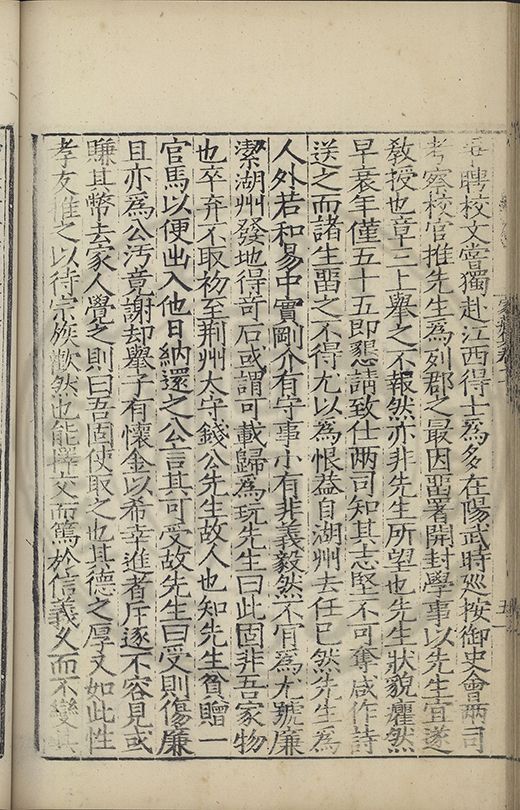 聘校文嘗獨赴江西得士爲多在陽武時巡按御史會兩司
考察校官推先生爲列郡之最因畱署開封學事以先生宜遂
教授也章三上舉之不報然亦非先生所望也先生狀貌癯然
早衰年僅五十五即懇請致仕兩司知其志堅不可奪咸作詩
送之而諸生畱之不得尤以爲恨葢自湖州去任已然先生爲
人外若和易中實剛介有守事小有非義毅然不肎爲尤號廉
潔湖州發地得竒石或謂可載歸爲玩先生曰此固非吾家物
也卒弃不取初至荆州太守錢公先生故人也知先生貧贈一
官馬以便出入他日納還之公言其可受故先生曰受則傷廉
且亦爲公汚竟謝却舉子有懷金以希幸進者斥逐不容見或
賺其幣去家人覺之則曰吾固使取之也其德之厚又如此性
孝友推之以待宗族歡然也能擇交而篤於信義久而不變其